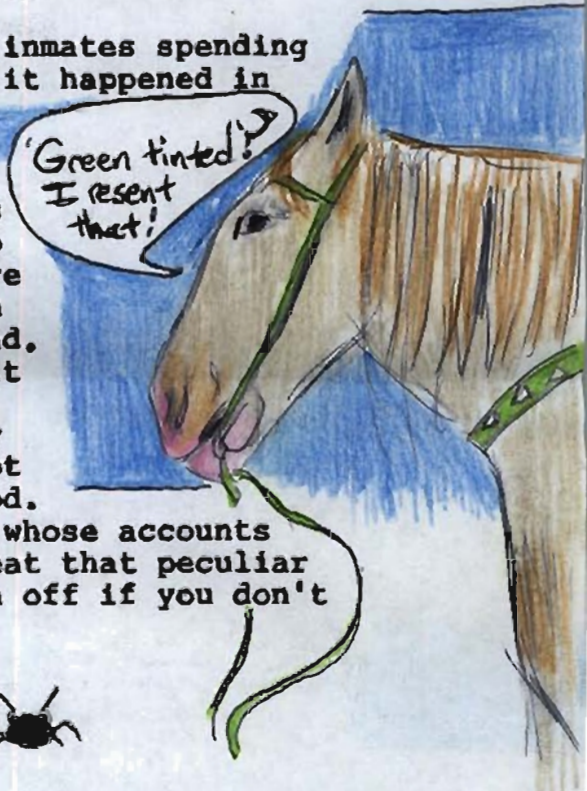 inmates spending
it happened in
'Green tinted'?
I resent
that!
d.
t
od.
whose accounts
eat that peculiar
off if you don't